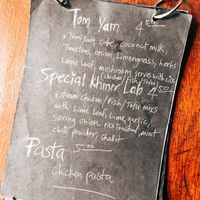 Tom Yam 4.50
Tom Yam cube, coconut milk,
Tomatoes, onion, Lemongrass, herbs
Lime leaf, mushroom serves with rice
(chicken/Fish/Tofu)
Special Khmer Lab 4.50
chicken/Fish/Tofu mixes
with Lime leaf, Lime, garlic,
Spring onion, rice toasted, mint
chili powder, shallot
Pasta 5.00
chicken pasta